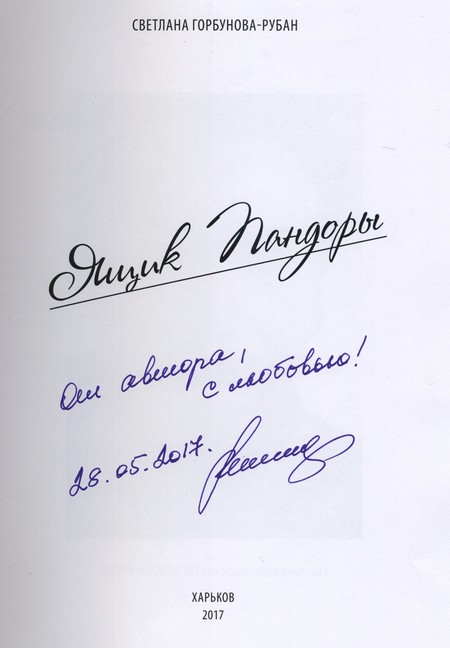 СВЕТЛАНА ГОРБУНОВА-РУБАН
Ящик Пандоры
От автора,
с любовью!
28.05.2017.
ХАРЬКОВ
2017